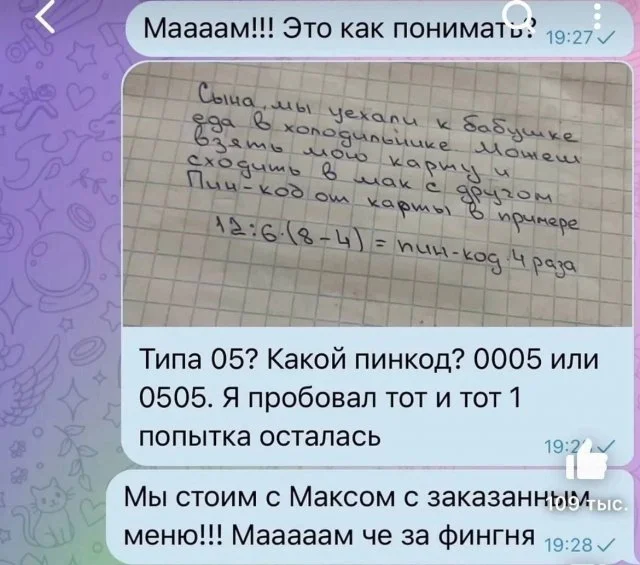 Маааам!!! Это как понимать?
19:27
Сына, мы уехали к бабушке
еда в холодильнике Можеш
взять мою карту и
сходить в мак с другом
Пин-код от карты в примере
12:6·(8-4) = пин-код 4 раза
Типа 05? Какой пинкод? 0005 или
0505. Я пробовал тот и тот 1
попытка осталась
19:2
Мы стоим с Максом с заказанным
109 тыс.
меню!!! Мааааам че за фингня
19:28